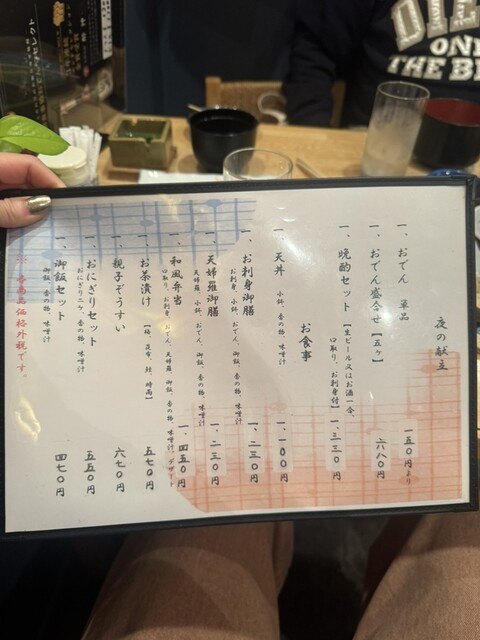 夜の献立
一、おでん 単品 一五〇円より
一、おでん盛合せ【五ヶ】 六八〇円
一、晩酌セット【生ビール又はお酒一合、口取り、お刺身付】 一、三三〇円
お食事
一、天丼 小鉢、香の物、味噌汁 一、一〇〇円
一、お刺身御膳 一、二三〇円
お刺身、小鉢、おでん、御飯、香の物、味噌汁
一、天婦羅御膳 一、二三〇円
天婦羅、小鉢、おでん、御飯、香の物、味噌汁
一、和風弁当 一、四五〇円
口取り、お刺身、おでん、天婦羅、御飯、香の物、味噌汁、デザート
一、お茶漬け【梅、昆布、鮭、時雨】 五七〇円
一、親子ぞうすい 六七〇円
一、おにぎりセット 五五〇円
おにぎり二ケ、香の物、味噌汁
一、御飯セット 四七〇円
御飯、香の物、味噌汁
※各商品価格外税です。
ONE
THE BE